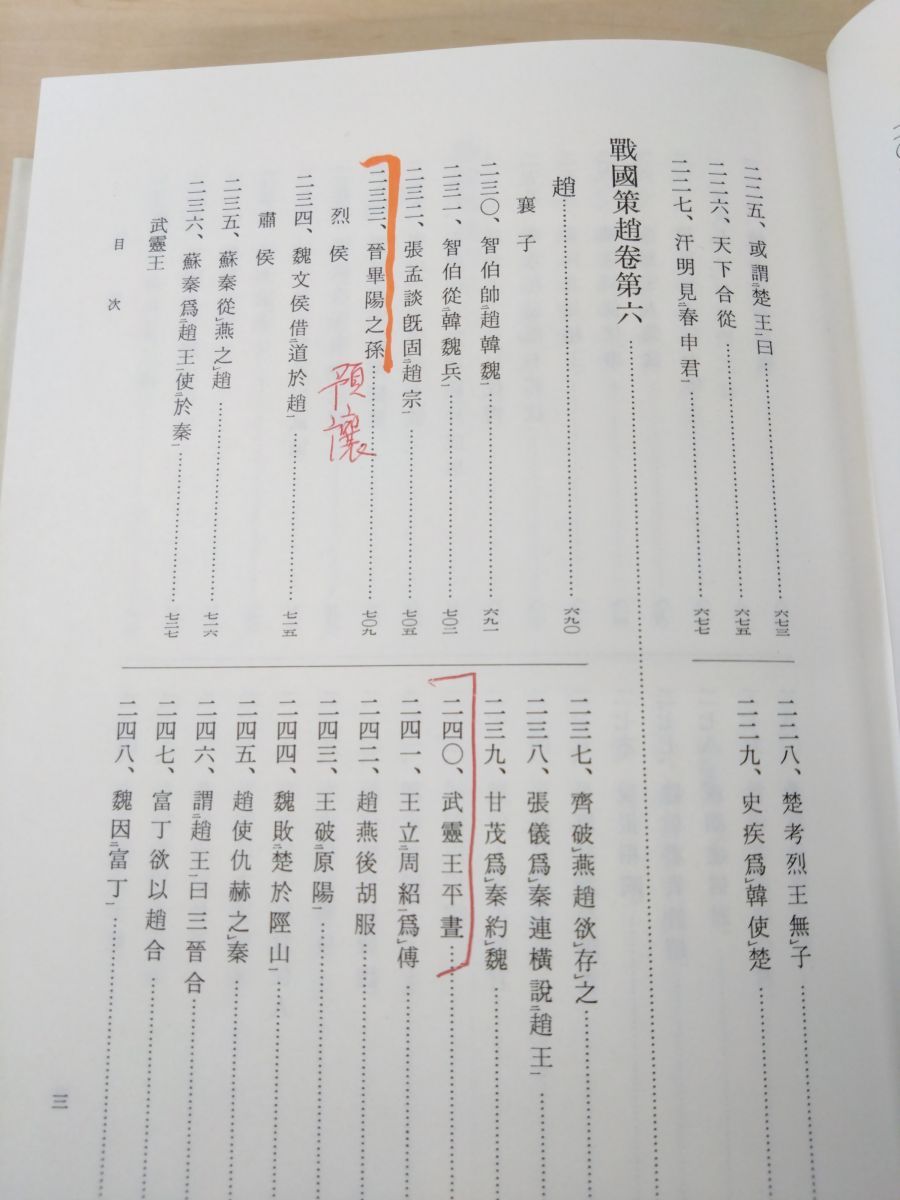 二二五、或謂㆓楚王㆒曰……六七三
二二六、天下合從……六七五
二二七、汗明見㆓春申君㆒……六七七
戰國策趙卷第六……
趙……六九〇
襄子
二三〇、智伯帥㆓趙韓魏㆒……六九一
二三一、智伯從㆓韓魏兵㆒……七〇二
二三二、張孟談旣固㆓趙宗㆒……七〇五
二三三、晉畢陽之孫……七〇九
預讓
烈侯
二三四、魏文侯借㆓道於趙㆒……七一五
肅侯
二三五、蘇秦從㆑燕之㆑趙……七一六
二三六、蘇秦爲㆓趙王㆒使㆓於秦㆒……七二七
武靈王
二二八、楚考烈王無㆑子
二二九、史疾爲㆑韓使㆑楚……
二三七、齊破㆑燕趙欲㆑存㆑之……
二三八、張儀爲㆑秦連橫說㆓趙王㆒……
二三九、甘茂爲㆑秦約㆑魏……
二四〇、武靈王平晝……
二四一、王立㆓周紹㆒爲㆑傅……
二四二、趙燕後胡服……
二四三、王破㆓原陽㆒……
二四四、魏敗㆓楚於陘山㆒……
二四五、趙使仇赫之㆑秦……
二四六、謂㆓趙王㆒曰三晉合……
二四七、富丁欲以趙合……
二四八、魏因㆓富丁㆒……
目次
三